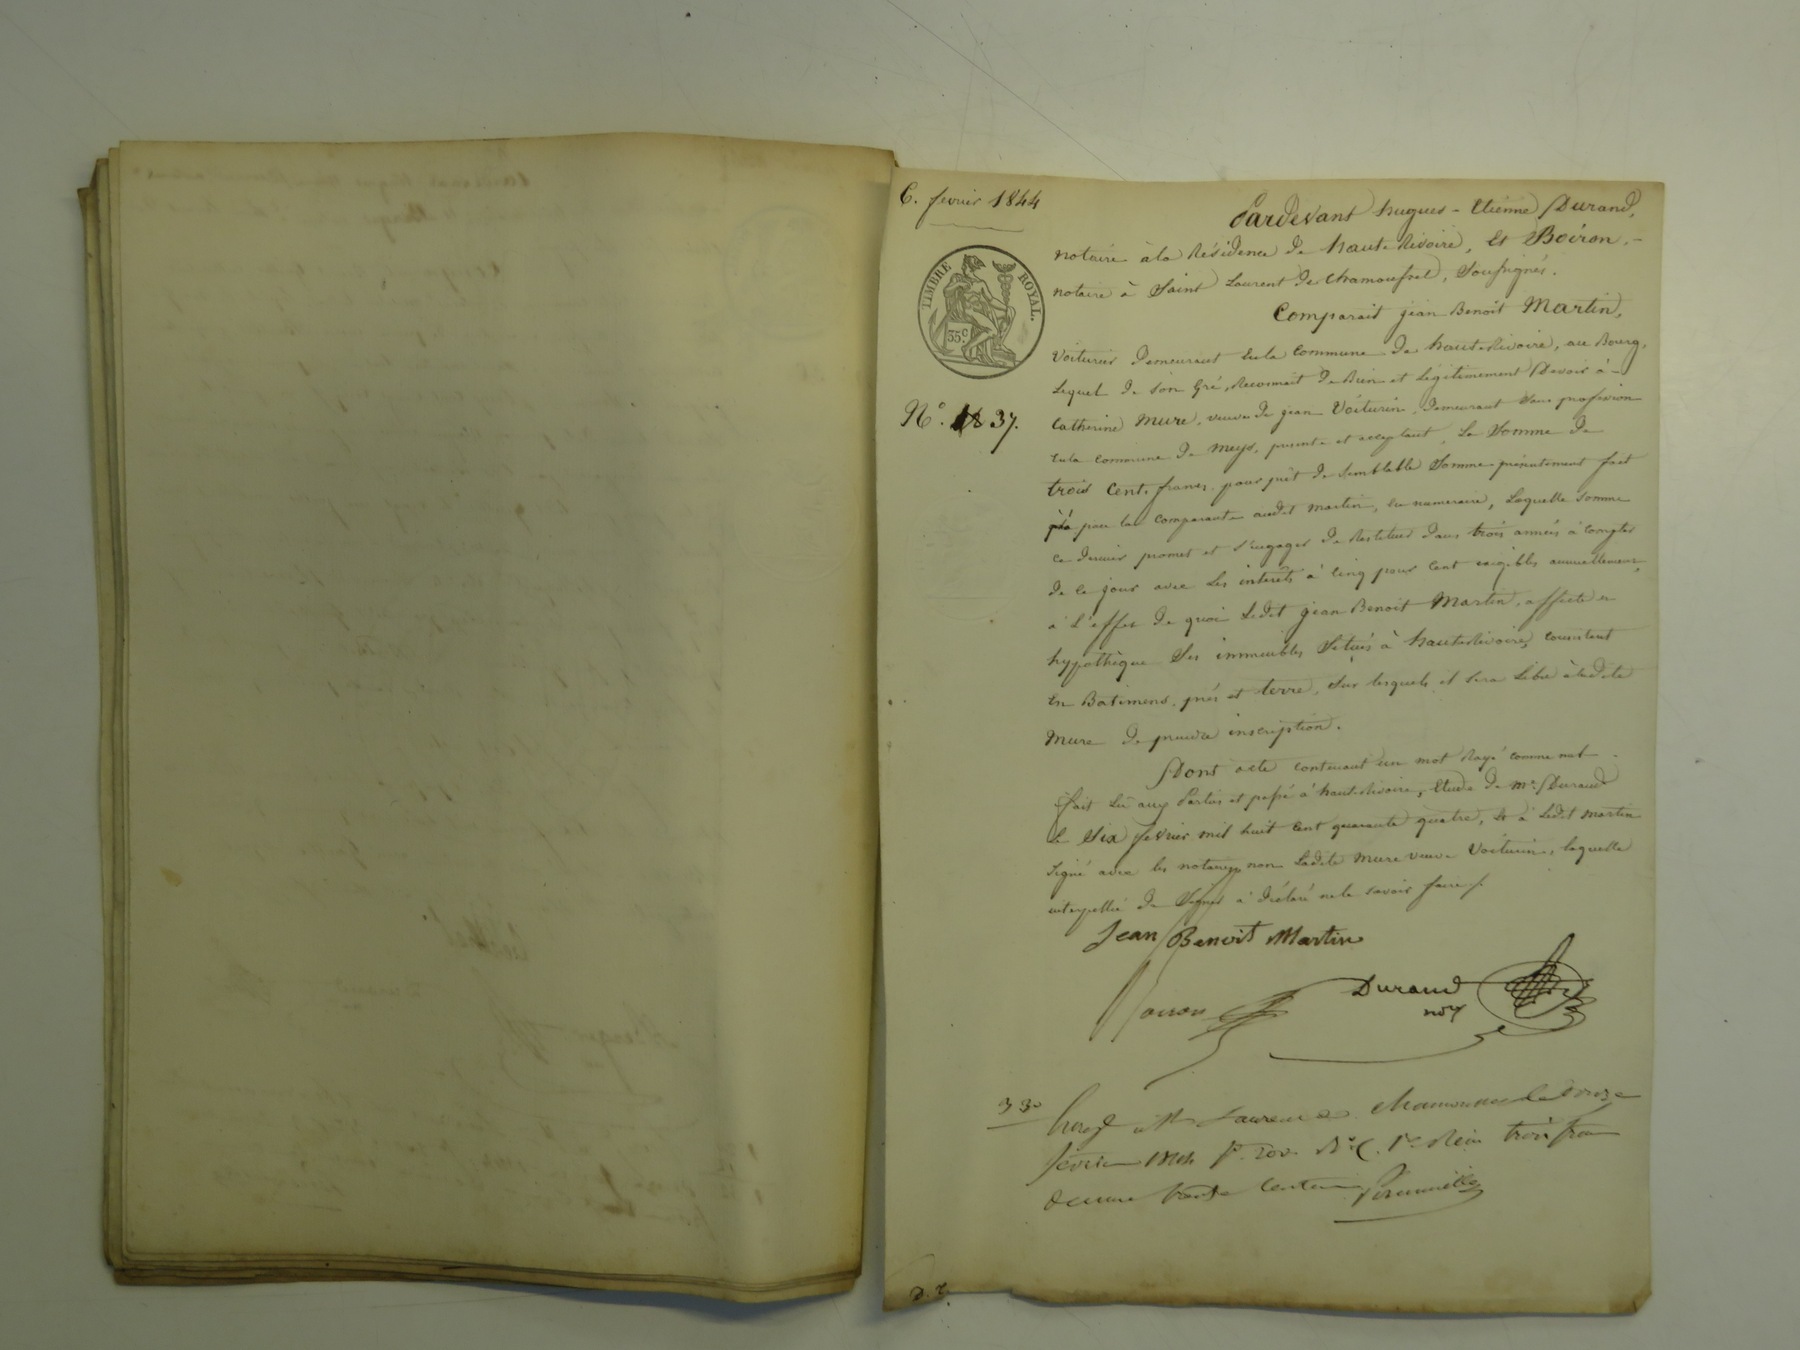 6. fevrier 1844
TIMBRE ROYAL.
35c.
N.° 37.
Pardevant hugues - Etienne Durand,
notaire à la Résidence de haute Rivoire, Et Boiron,
notaire à Saint Laurent de Chamousset, Soussignés.
Comparait jean Benoit Martin,
Voiturier demeurant en la Commune de haute Rivoire, au Bourg,
Lequel de Son Gré, Reconnait de Bien et Légitimement Devoir à
Catherine Mure, veuve de jean Voiturin, demeurant Sans profession
en la commune de Meys, présente et acceptant, La Somme de
trois Cents francs, pour prêt de Semblable Somme présentement fait
par la Comparante audit Martin, en numeraire, Laquelle Somme
ce dernier promet et s'engage de Restituer dans trois années à Compter
de ce jour avec Les intérêts à Cinq pour Cent exigibles annuellement,
à L'effet de quoi Ledit jean Benoit Martin, affecte et
hypothèque Ses immeubles Situés à haute Rivoire, consistant
En Batimens, prés et terre, Sur lesquels il sera Libre à ladite
Mure de prendre inscription.
Dont acte contenant un mot Rayé comme nul
fait Lu aux Parties et passé à haute Rivoire, Etude de Me. Durand
Le Six fevrier mil huit cent quarante quatre, Et à Ledit Martin
Signé avec les notaires, non Ladite Mure veuve Voiturin, laquelle
interpellée de Signer a déclaré ne le savoir faire /.
Jean Benoit Martin
Boiron
Durand
nore
3 30
Enregé à St Laurent de Chamousset le douze
février 1844 fo. 20 vo. Reçu trois francs
decime trente centimes
D. E.